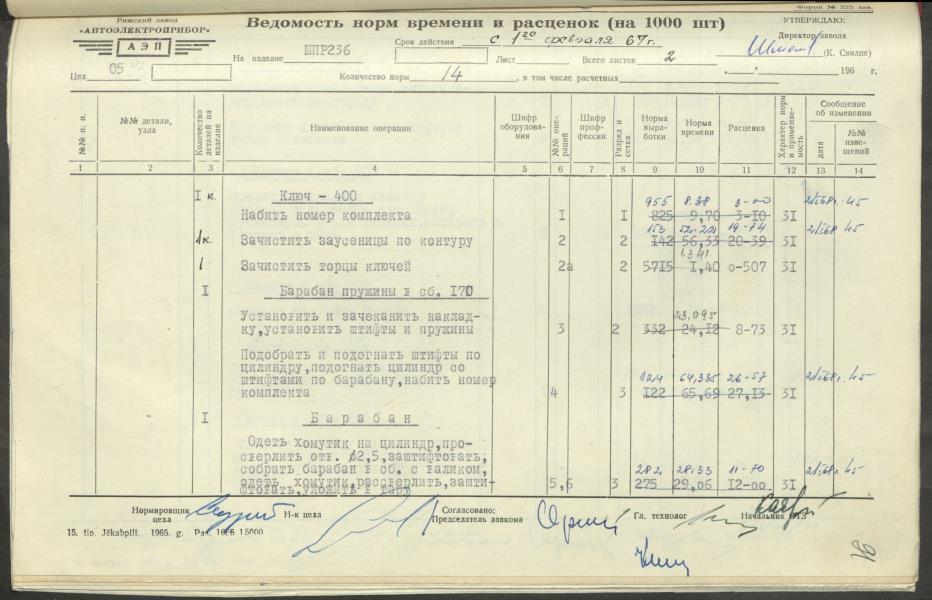 Форма № 225 зав.
Рижский завод
«АВТОЭЛЕКТРОПРИБОР»
АЭП
Ведомость норм времени и расценок (на 1000 шт)
УТВЕРЖДАЮ:
Директор завода
(К. Свилпе)
196 г.
На изделие ШПР236
Срок действия с 1го февраля 67г.
Лист Всего листов 2
Цех 05
Количество норм 14, в том числе расчетных
№№ п. п.
№№ детали, узла
Количество деталей на изделие
Наименование операции
Шифр оборудования
№№ операций
Шифр профессии
Разряд и сетка
Норма выработки
Норма времени
Расценка
Характер. норм и применяемость
Сообщение об изменении
дата
№№ извещений
1 2 3 4 5 6 7 8 9 10 11 12 13 14
I к. Ключ - 400 955 8.38 3-00 45
Набить номер комплекта I I 825 9,70 3-I0 3I
153 19-74 45
1к. Зачистить заусеницы по контуру 2 2 I42 56,33 20-39 3I
1.341
1 Зачистить торцы ключей 2а 2 57I5 I,40 0-507 3I
I Барабан пружины в сб. I70
Установить и зачеканить наклад- 23,095
ку,установить штифты и пружины 3 2 332 24,I2 8-73 3I
Подобрать и подогнать штифты по
цилиндру,подогнать цилиндр со
штифтами по барабану,набить номер 124 64,385 26-57 45
комплекта 4 3 I22 65,69 27,I3 3I
I Барабан
Одеть хомутик на цилиндр,про-
сверлить отв. ∅2,5,заштифтовать,
собрать барабан в сб. с валиком, 282 28.33 11-70 45
одеть хомутик,рассверлить,зашти- 5,6 3 275 29,06 I2-00 3I
фтовать,уложить в тару
Нормировщик цеха
Н-к цеха
Согласовано:
Председатель завкома
Гл. технолог
Начальник ОТЗ
15. tip. Jēkabpilī. 1965. g. Pas. 1666 15000